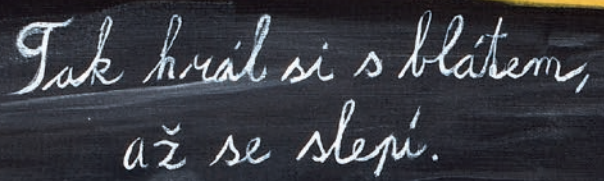 Tak hrál si s blátem,
až se slepí.